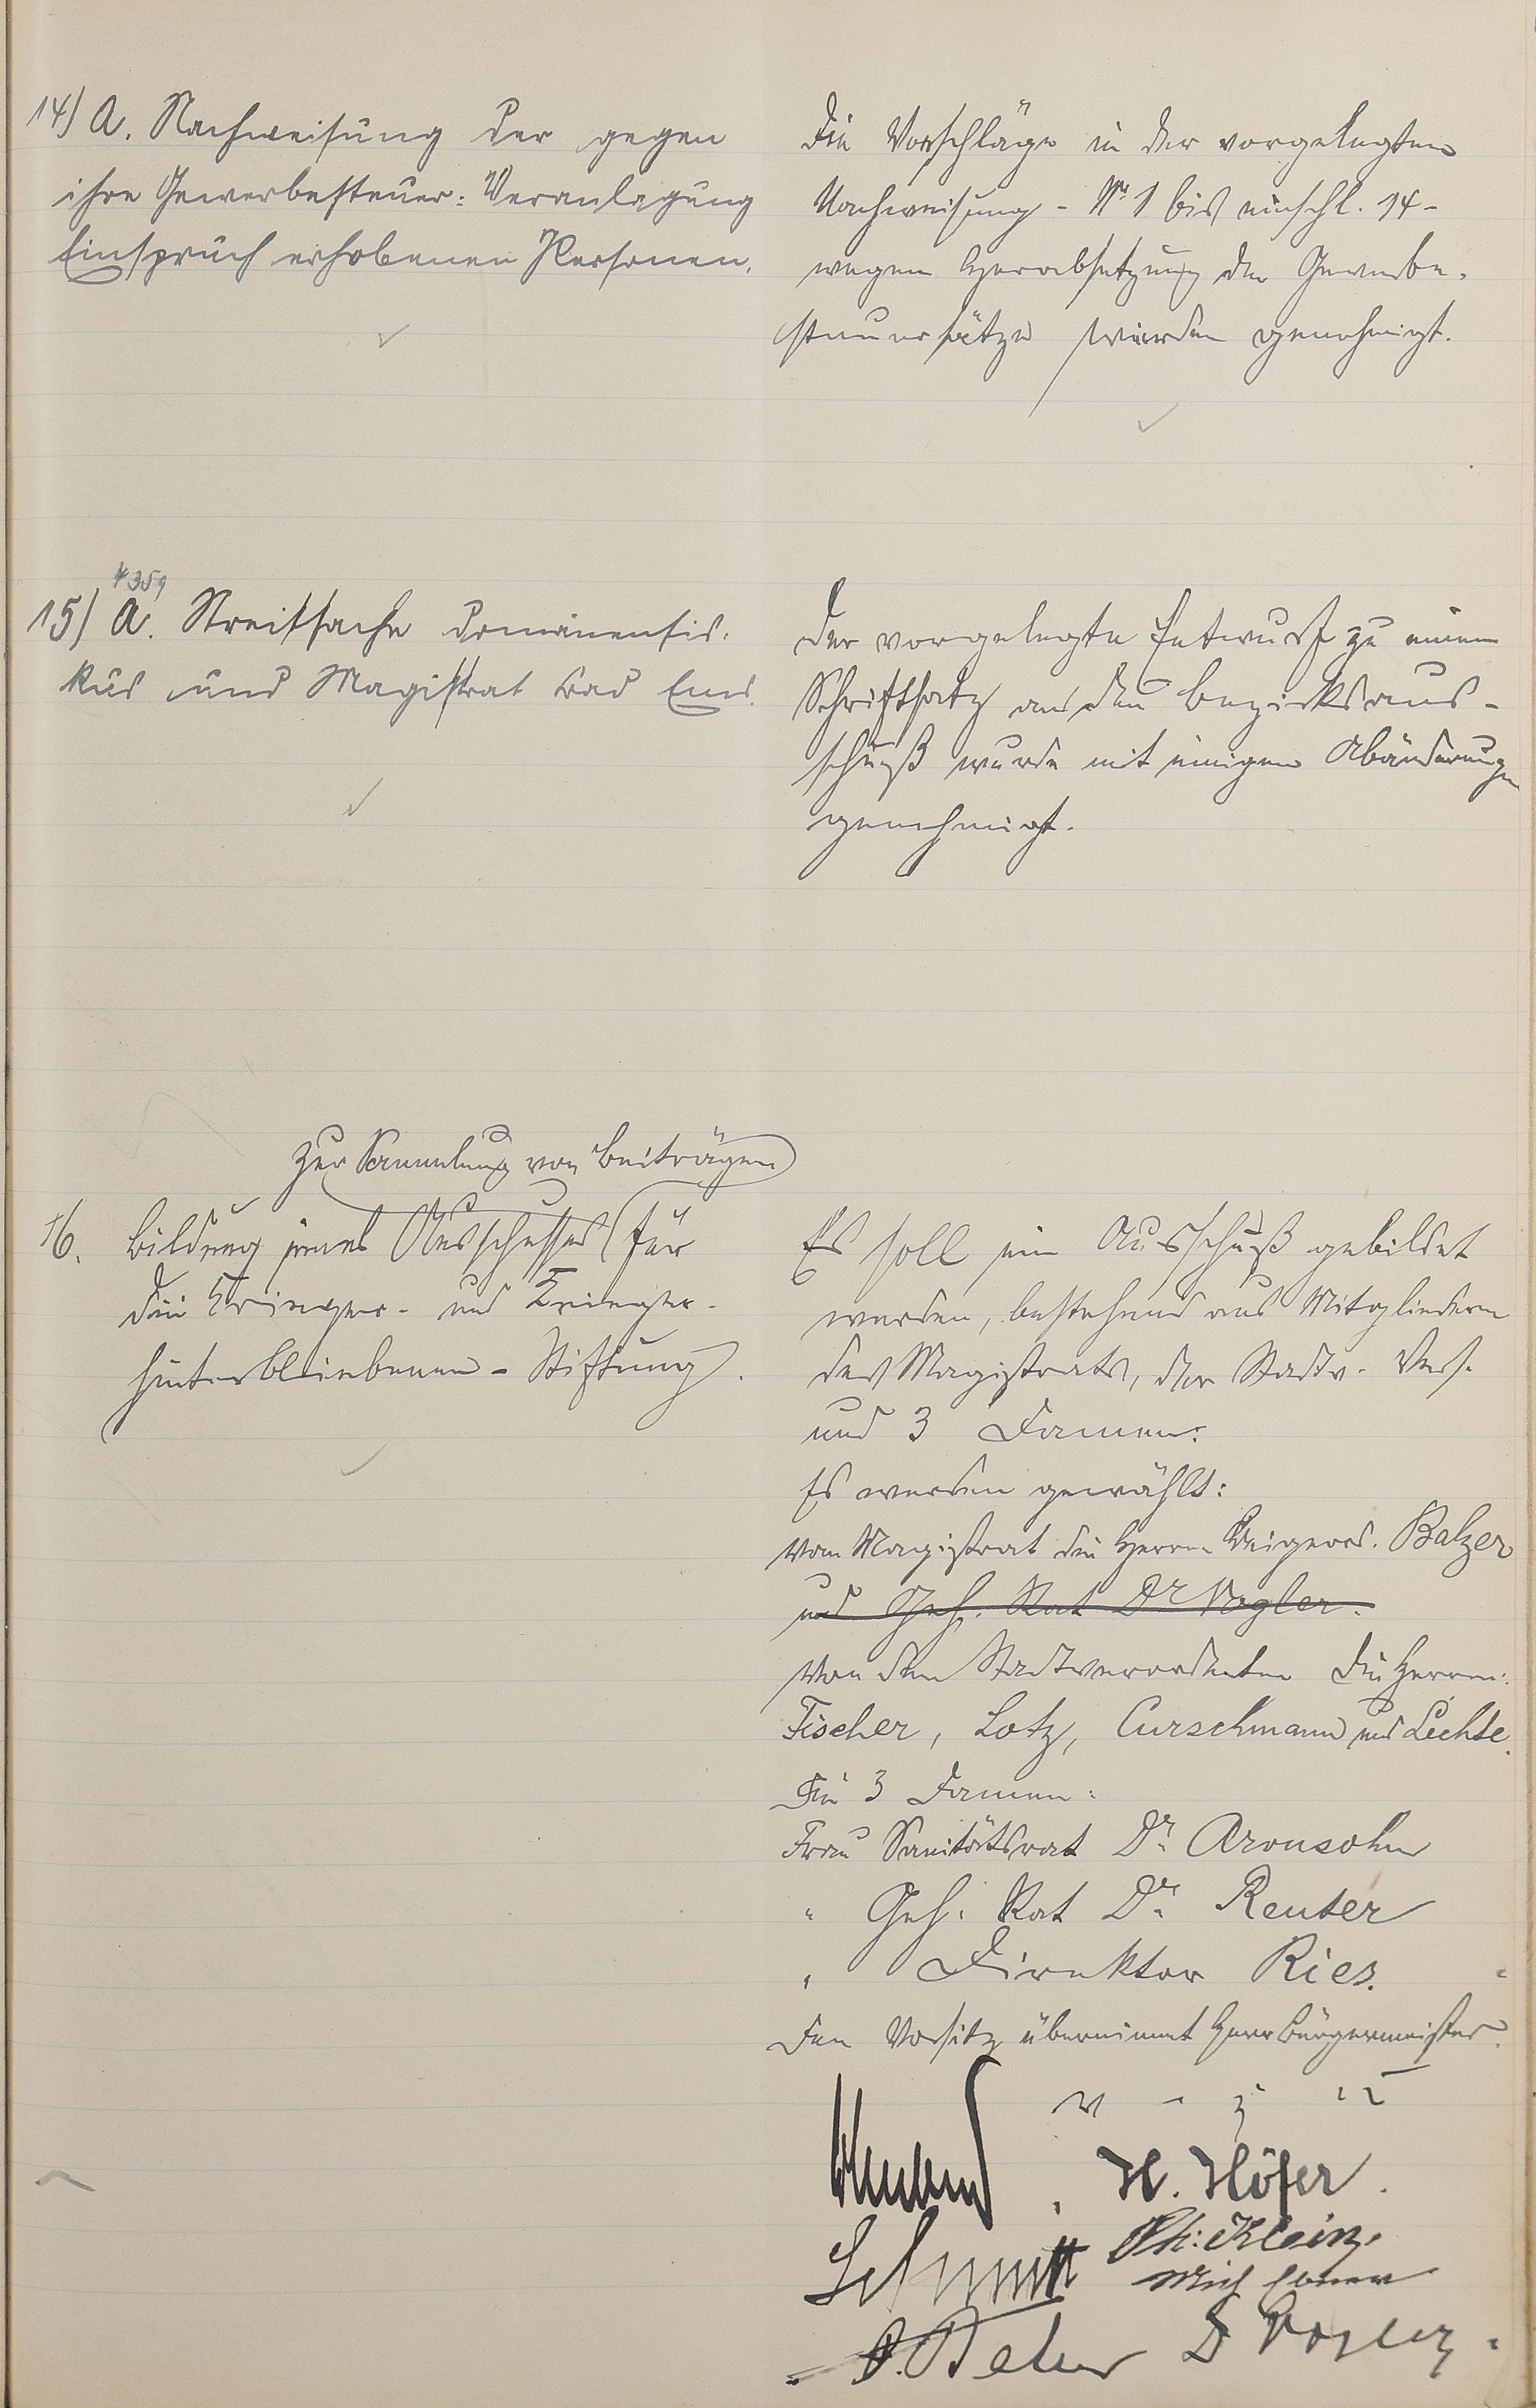 14) A. Nachweisung der gegen
ihre Gewerbesteuer-Veranlagung
Einspruch erhobenen Personen.
Die Vorschläge in der vorgelegten
Nachweisung - Nr 1 bis einschl. 14 -
wegen Herabsetzung der Gewerbe-
steuersätze wurden genehmigt.
15) A. Streitsache Domänenfis-
kus und Magistrat Bad Ems.
Der vorgelegte Entwurf zu einem
Schriftsatz an den Bezirksaus-
schuß wurde mit einigen Abänderungen
genehmigt.
zur Sammlung von Beiträgen
16. Bildung eines Ausschusses für
die Krieger- und Krieger-
hinterbliebenen-Stiftung.
Es soll ein Ausschuß gebildet
werden, bestehend aus Mitgliedern
des Magistrats, der Stadtv. Vers.
und 3 Damen.
Es werden gewählt:
vom Magistrat die Herren Beigeord. Balzer
und Geh. Rat Dr Vogler.
Von den Stadtverordneten die Herren:
Fischer, Lotz, Curschmann und Lichte.
Die 3 Damen:
Frau Sanitätsrat Dr. Aronsohn
" Geh. Rat Dr. Reuter
" Direktor Ries.
Den Vorsitz übernimmt Herr Bürgermeister.
v. g. u.
H. Höfer.
Schmitt Ph. Klein.
D Vogler.